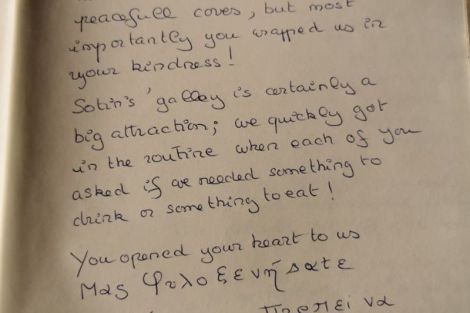 peacefull coves, but most
importantly you wrapped us in
your kindness!
Sotiri's 'galley is certainly a
big attraction; we quickly got
in the routine when each of you
asked if we needed something to
drink or something to eat!
You opened your heart to us
Μας φυλοξενήσατε
Πρεπει να